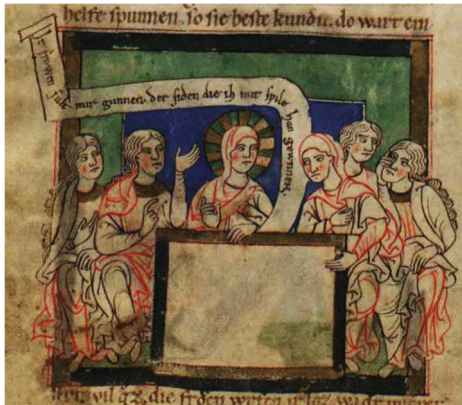 helfe spunnen. so sie beste kundn. do wart ein
Ir frowen sult mir gunnen. der siden die ih mit spile han gewnnen.
vil die